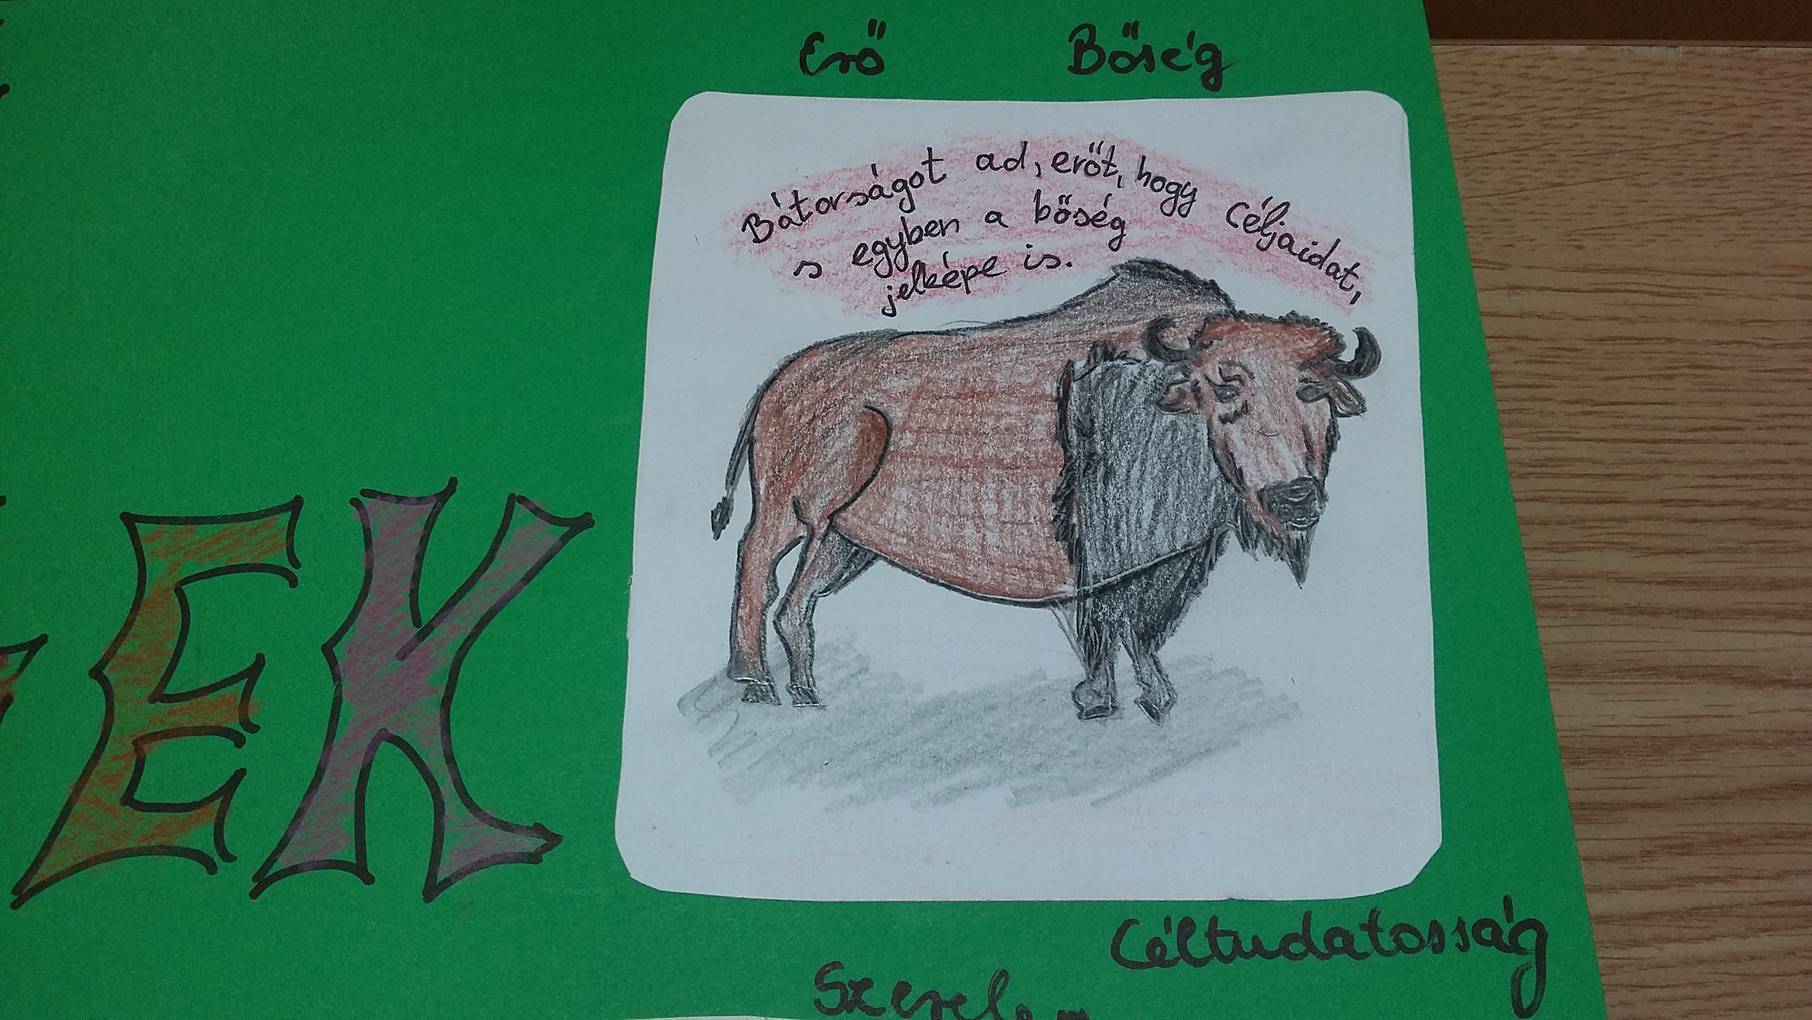 Erő Bőség
Bátorságot ad, erőt, hogy céljaidat,
s egyben a bőség
jelképe is.
EK
Céltudatosság